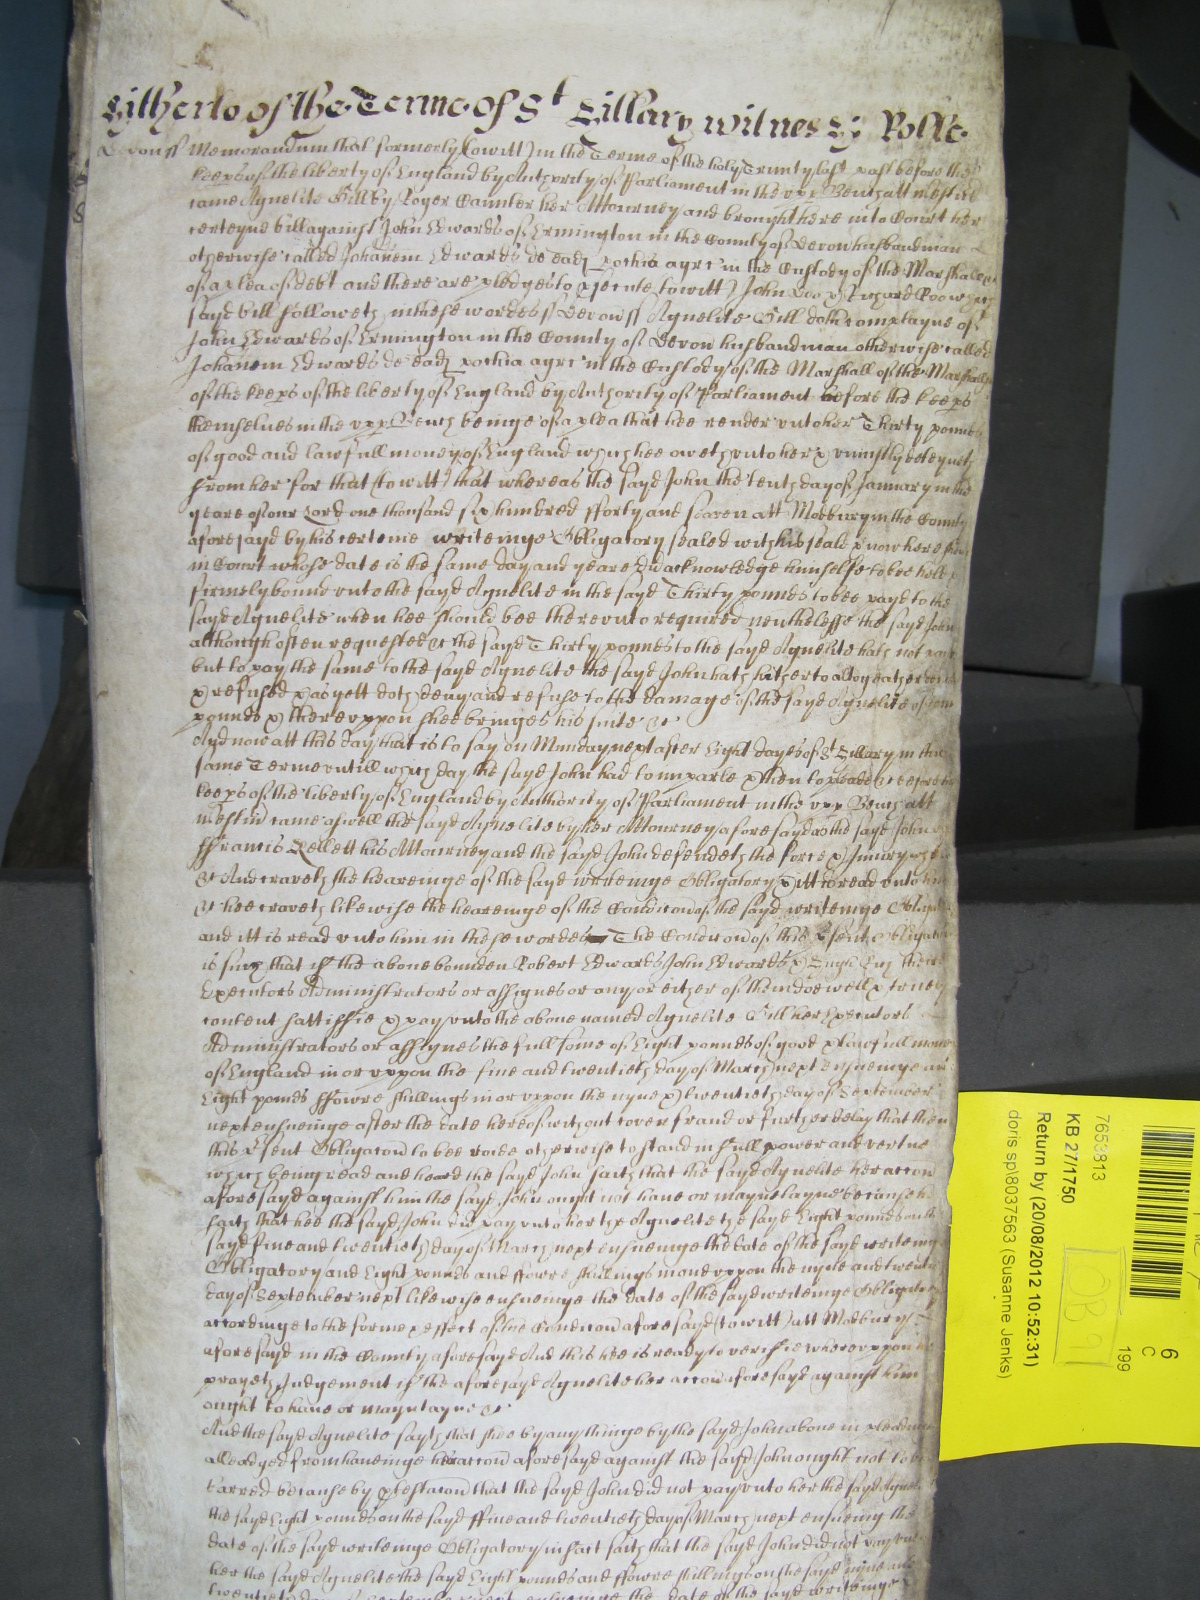 Hitherto of the Terme of St Hillary witnes H: Rolle
Devon ss Memorandum that formerly (towitt) in the Terme of the holy Trinity last past before the
keeps of the liberty of England by Authority of Parliament in the vpp Bench att Westm
came Agnelite Hill by Roger Caunter her Attourney and brought here into Court her
certeyne bill against John Edwards of Ermington in the County of Devon husbandman
otherwise called Johanem Edwards de ead pochia agr in the Custody of the Marshall &c
of a plea of debt and there are pledges to psecute towitt John Doo & Richard Roo which
sayd bill followeth in these wordes ss Devon ss Agnelite Hill doth complayne of
John Edwards of Ermington in the County of Devon husbandman otherwise called
Johanem Edwards de ead pochia agr in the Custody of the Marshall of the Marshallsey
of the keeps of the liberty of England by Authority of Parliament before the keeps
themselues in the vpp Bench beinge of a plea that hee render vnto her Thirty pounds
of good and lawfull money of England which hee oweth vnto her & vniustly deteyneth
from her for that (towitt) that whereas the sayd John the tenth day of January in the
yeare of our Lord one thousand six hundred fforty and seaven att Modbury in the County
aforesayd by his certeine writeinge Obligatory sealed with his seale & now here
in Court whose date is the same day and yeare did acknowledge himselfe to bee held &
firmely bound vnto the sayd Agnelite in the sayd Thirty pounds to bee payd to the
sayd Agnelite when hee should bee therevnto required neuthelesse the sayd John
although often requested &c the sayd Thirty pounds to the sayd Agnelite hath not
but to pay the same to the sayd Agnelite the sayd John hath hitherto altogeather
& refused & as yett doth deny and refuse to the damage of the sayd Agnelite of
pounds & therevppon shee bringes his suite &c
And now att this day that is to say on Munday next after Eight dayes of St Hillary in this
same Terme vntill which day the sayd John had to imparle & then to pleade &c before the
keeps of the liberty of England by Authority of Parliament in the vpp Bench att
Westm came aswell the sayd Agnelite by her Attourney aforesayd as the sayd John
ffrancis Kellett his Attourney and the sayd John defendeth the force & Iniury when
&c And craveth the heareinge of the sayd writeinge Obligatory & itt is read vnto him
&c hee craveth likewise the heareinge of the Condicon of the sayd writeinge
and itt is read vnto him in these wordes The Condicon of this psent Obligacon
is such that if the aboue bounden Robert Edwards John Edwards & Hugh their
Executors Administrators or assignes or any or either of them doe well & truely
content sattisfie & pay vnto the aboue named Agnelite Hill her Executors
Administrators or assignes the full some of Eight pounds of good & lawfull money
of England in or vppon the fiue and twentieth day of March next ensueinge and
Eight pounds ffowre shillings in or vppon the nyne & twentieth day of September
next ensueinge after the date hereof without cover fraud or further delay that then
this psent Obligacon to bee voide otherwise to stand in full power and vertue
which being read and heard the sayd John saith that the sayd Agnelite her accon
aforesayd against him the sayd John ought not to haue or mayntayne because hee
saith that hee the sayd John did pay vnto her the Agnelite the sayd Eight pounds on the
sayd fiue and twentieth day of March next ensueinge the date of the sayd writeinge
Obligatory and Eight pounds and ffowre shillings in and vppon the nyne and twentieth
day of September next likewise ensueinge the date of the sayd writeinge Obligatory
accordinge to the forme & effect of the Condicon aforesayd (towitt) att Modbury
aforesayd in the County aforesayd And this hee is ready to verifie wherevppon hee
prayeth Judgement if the aforesayd Agnelite her accon aforesayd against him
ought to haue or mayntayne &c
And the sayd Agnelite sayth that shee by any thinge by the sayd John aboue in pleadinge
alleadged from haueinge her accon aforesayd against the sayd John ought not to be
barred because by ptestacon that the sayd John did not pay vnto her the sayd Agnelite
the sayd Eight pounds on the sayd ffiue and twentieth day of March next ensueing the
date of the sayd writeinge Obligatory in fact saith that the sayd John did not pay vnto
her the sayd Agnelite the sayd Eight pounds and ffowre shillings on the sayd nyne and
twentieth day of September next ensueinge the date of the sayd writeinge
6
C
199
7653813
KB 27/1750
Return by (20/08/2012 10:52:31)
doris sp8037563 (Susanne Jenks)